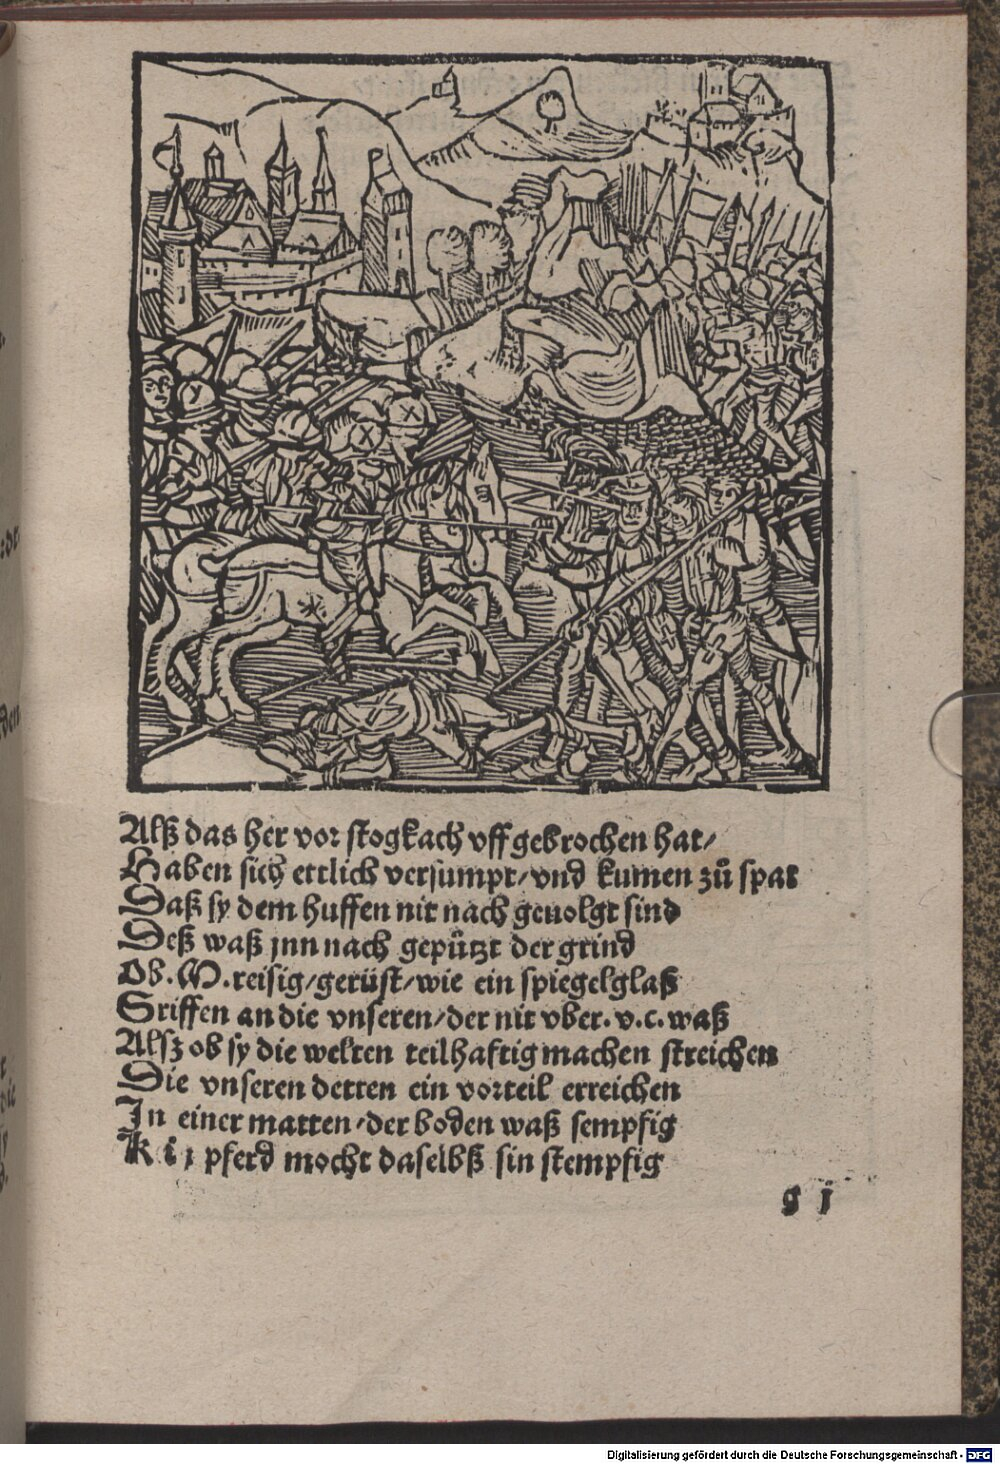 Alß das her vor stogkach vff gebrochen hat/
Haben sich ettlich versumpt/vnd kumen zů spat
Daß sy dem huffen nit nach geuolgt sind
Deß waß jnn nach gepützt der grind
Ob.M.reisig/gerüst/wie ein spiegelglaß
Griffen an die vnseren/der nit vber.v.c.waß
Alsz ob sy die welten teilhaftig machen streichen
Die vnseren detten ein vorteil erreichen
In einer matten/der boden waß sempfig
pferd mocht daselbß sin stempfig
g j
Digitalisierung gefördert durch die Deutsche Forschungsgemeinschaft - DFG